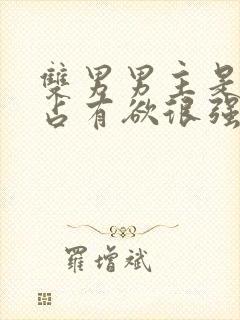 雙男男主是
占有欲很强
羅增斌